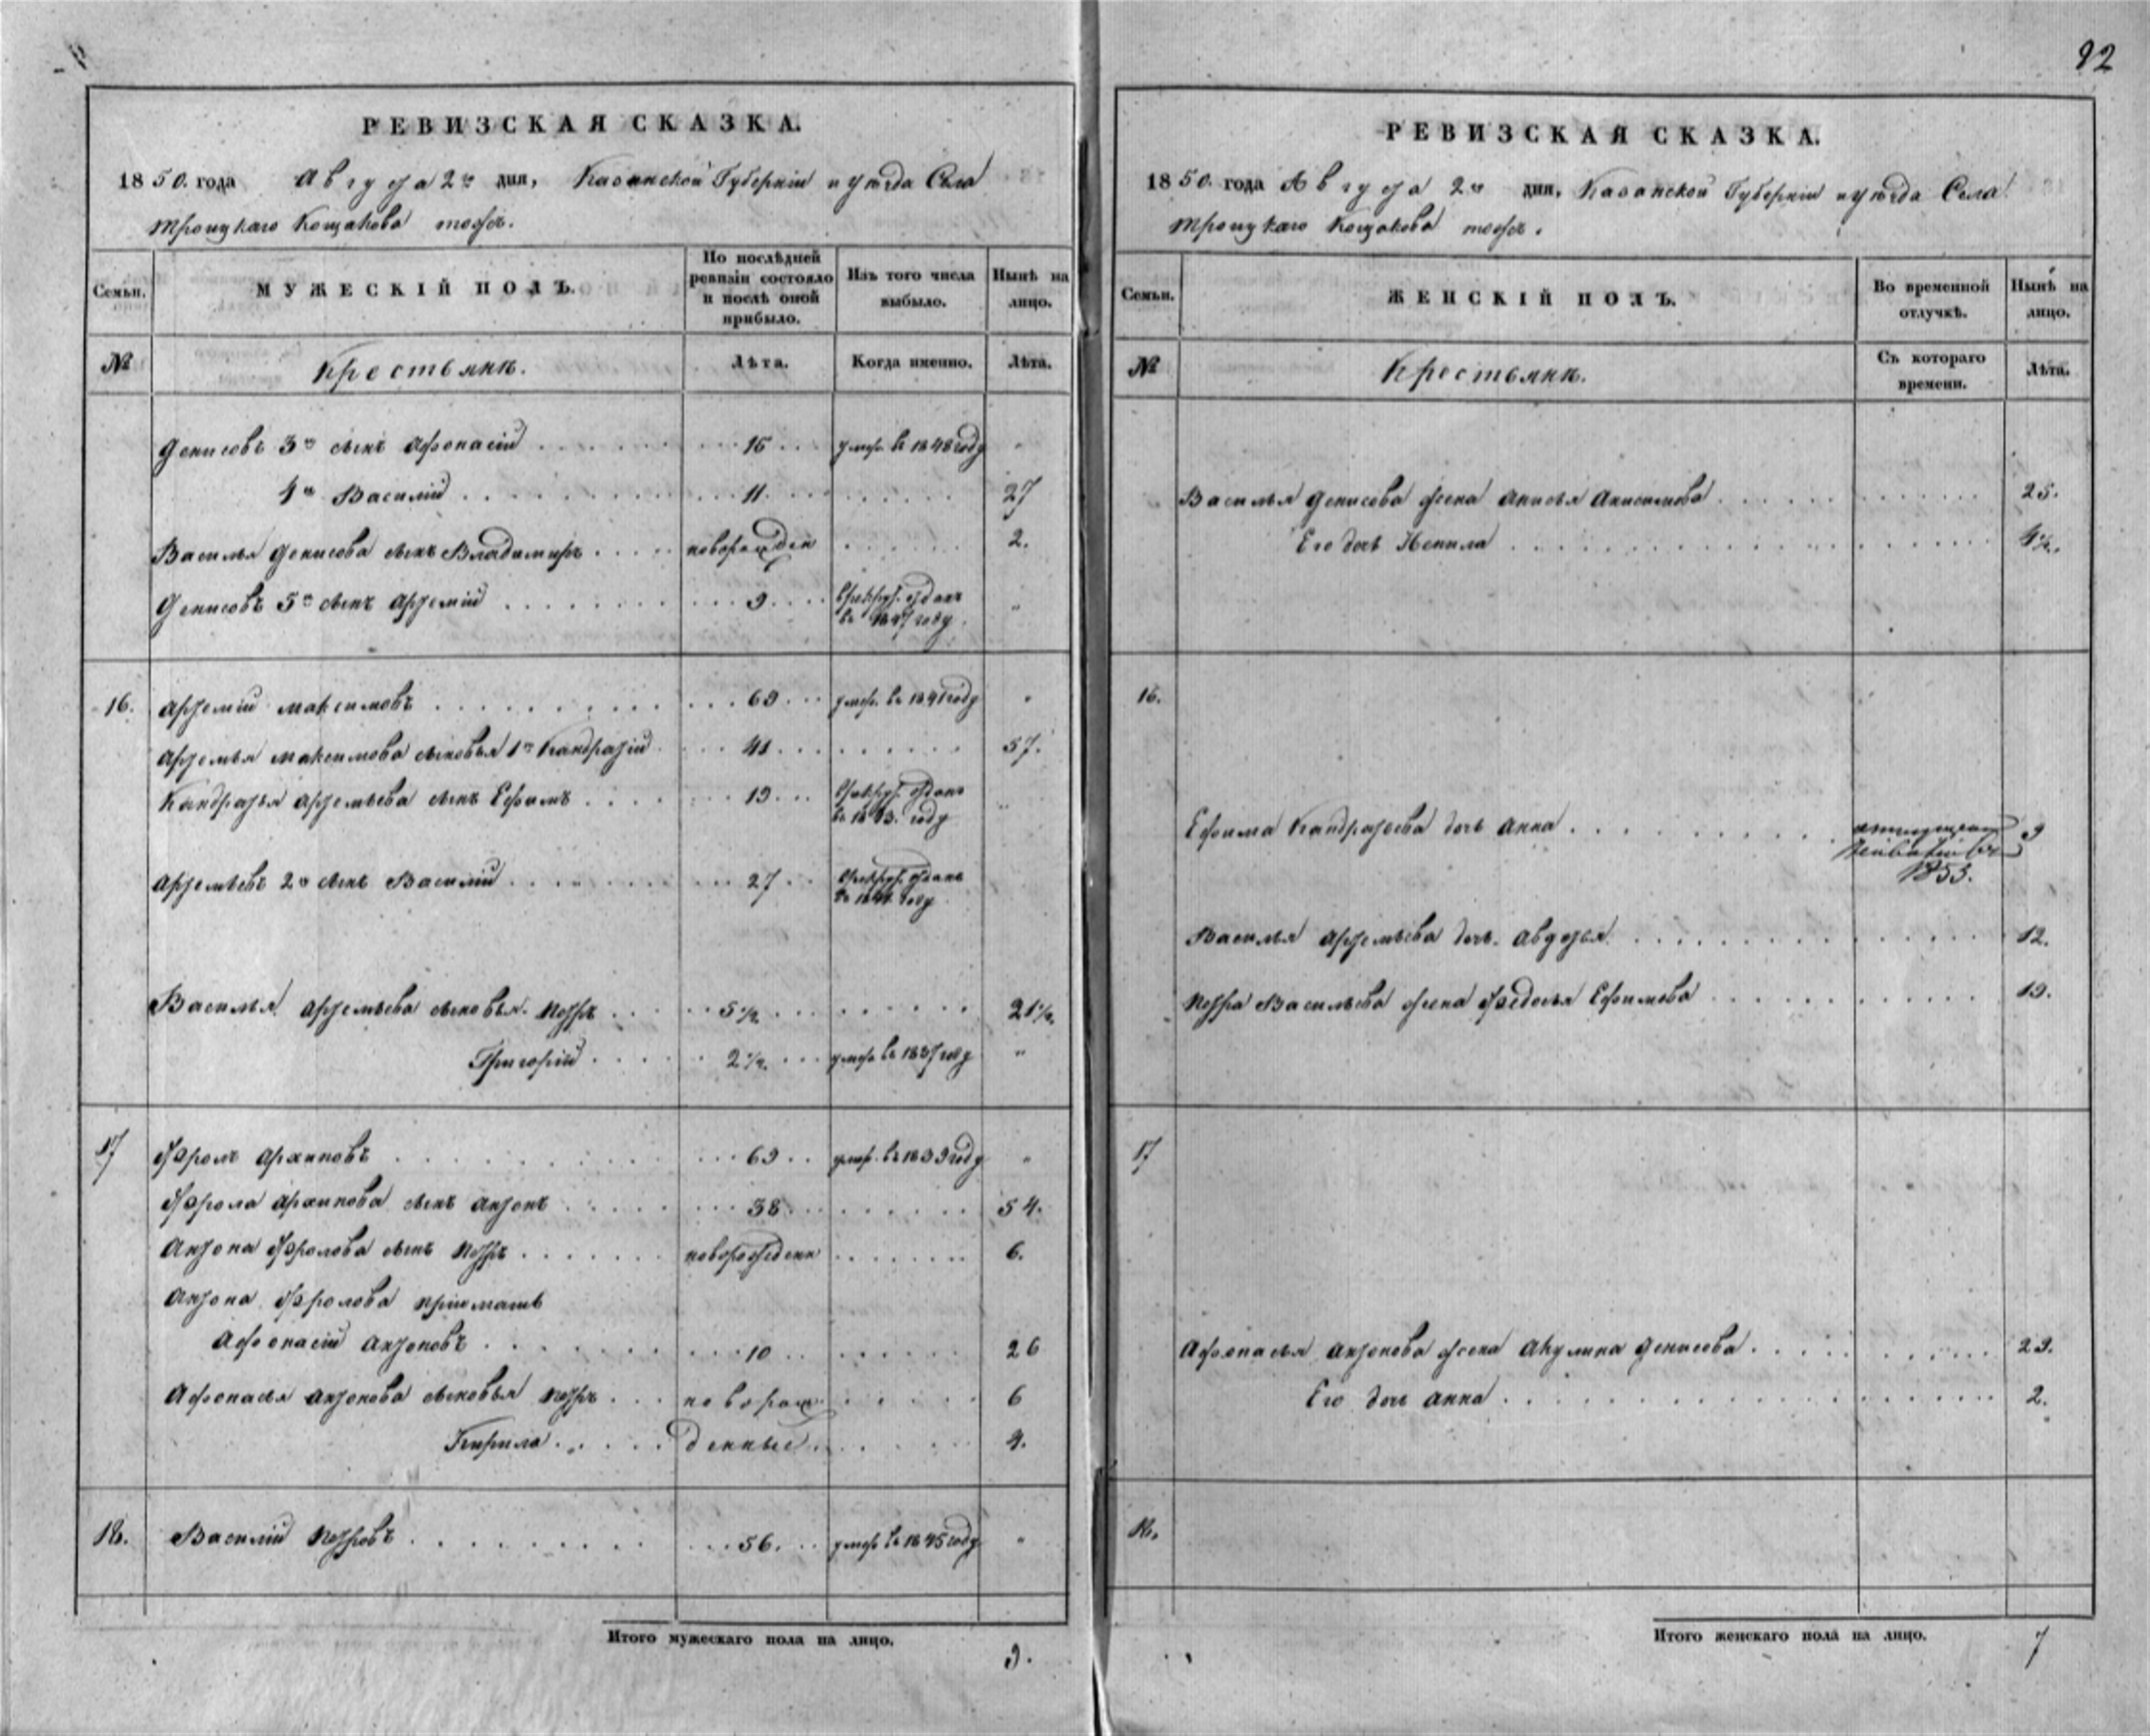 92
РЕВИЗСКАЯ СКАЗКА.
1850. года Августа 2го дня, Казанской Губерніи и уѣзда Села
Троицкаго Кощакова тожъ.
Семьи.
МУЖЕСКІЙ ПОЛЪ.
По послѣдней ревизіи состояло и послѣ оной прибыло.
Изъ того числа выбыло.
Нынѣ на лицо.
№
Крестьянъ.
Лѣта.
Когда именно.
Лѣта.
Денисовъ 3й сынъ Афонасій 16 умер. въ 1848 году "
4й Василій 11. 27
Василья Денисова сынъ Владимиръ новорожден 2.
Денисовъ 5й сынъ Артемій 9 в рекрут. отданъ "
въ 1847 году
16. Артемій Максимовъ 69 умер. въ 1841 году "
Артемья Максимова сыновья 1й Кандратій 41 57.
Кандратья Артемьева сынъ Ефимъ 19 в рекрут. отданъ "
году
Артемьевъ 2й сынъ Василій 27 в рекрут. отданъ
году
Василья Артемьева сыновья. Петръ 5 1/2 21 1/2.
Григорій 2 1/2. умер въ 1837 году "
17 Фролъ Архиповъ 69 умер. въ 1839 году "
Фрола Архипова сынъ Антонъ 38 54.
Антона Фролова сынъ Петръ новорожденн 6.
Антона Фролова пріимышъ
Афонасій Антоновъ 10 26
Афонасья Антонова сыновья Петръноворож 6
Кирила денные 4.
18. Василій Петровъ 56. умер въ 1845 году "
Итого мужескаго пола на лицо. 9.
РЕВИЗСКАЯ СКАЗКА.
1850. года Августа 2го дня, Казанской Губерніи и уѣзда Села
Троицкаго Кощакова тожъ.
Семьи.
ЖЕНСКІЙ ПОЛЪ.
Во временной отлучкѣ.
Нынѣ на лицо.
№
Крестьянъ.
Съ котораго времени.
Лѣта.
Василья Денисова жена Анисья Анисимова 25.
Его дочь Ненила 4 1/2.
16.
Ефима Кандратьева дочь Анна 9
1853.
Василья Артемьева дочь. Авдотья 12.
Петра Васильева жена Федосья Ефимова 19.
17
Афонасья Антонова жена Акулина Денисова 23.
Его дочь Анна 2.
18.
Итого женскаго пола на лицо. 7